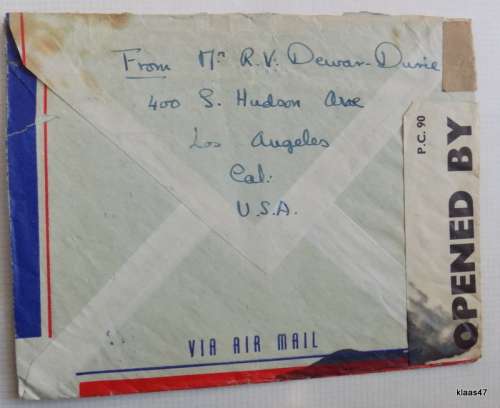 From Mr R.V. Dewar-Durie
400 S. Hudson Ave
Los Angeles
Cal:
U.S.A.
VIA AIR MAIL
P.C. 90
OPENED BY
klaas47